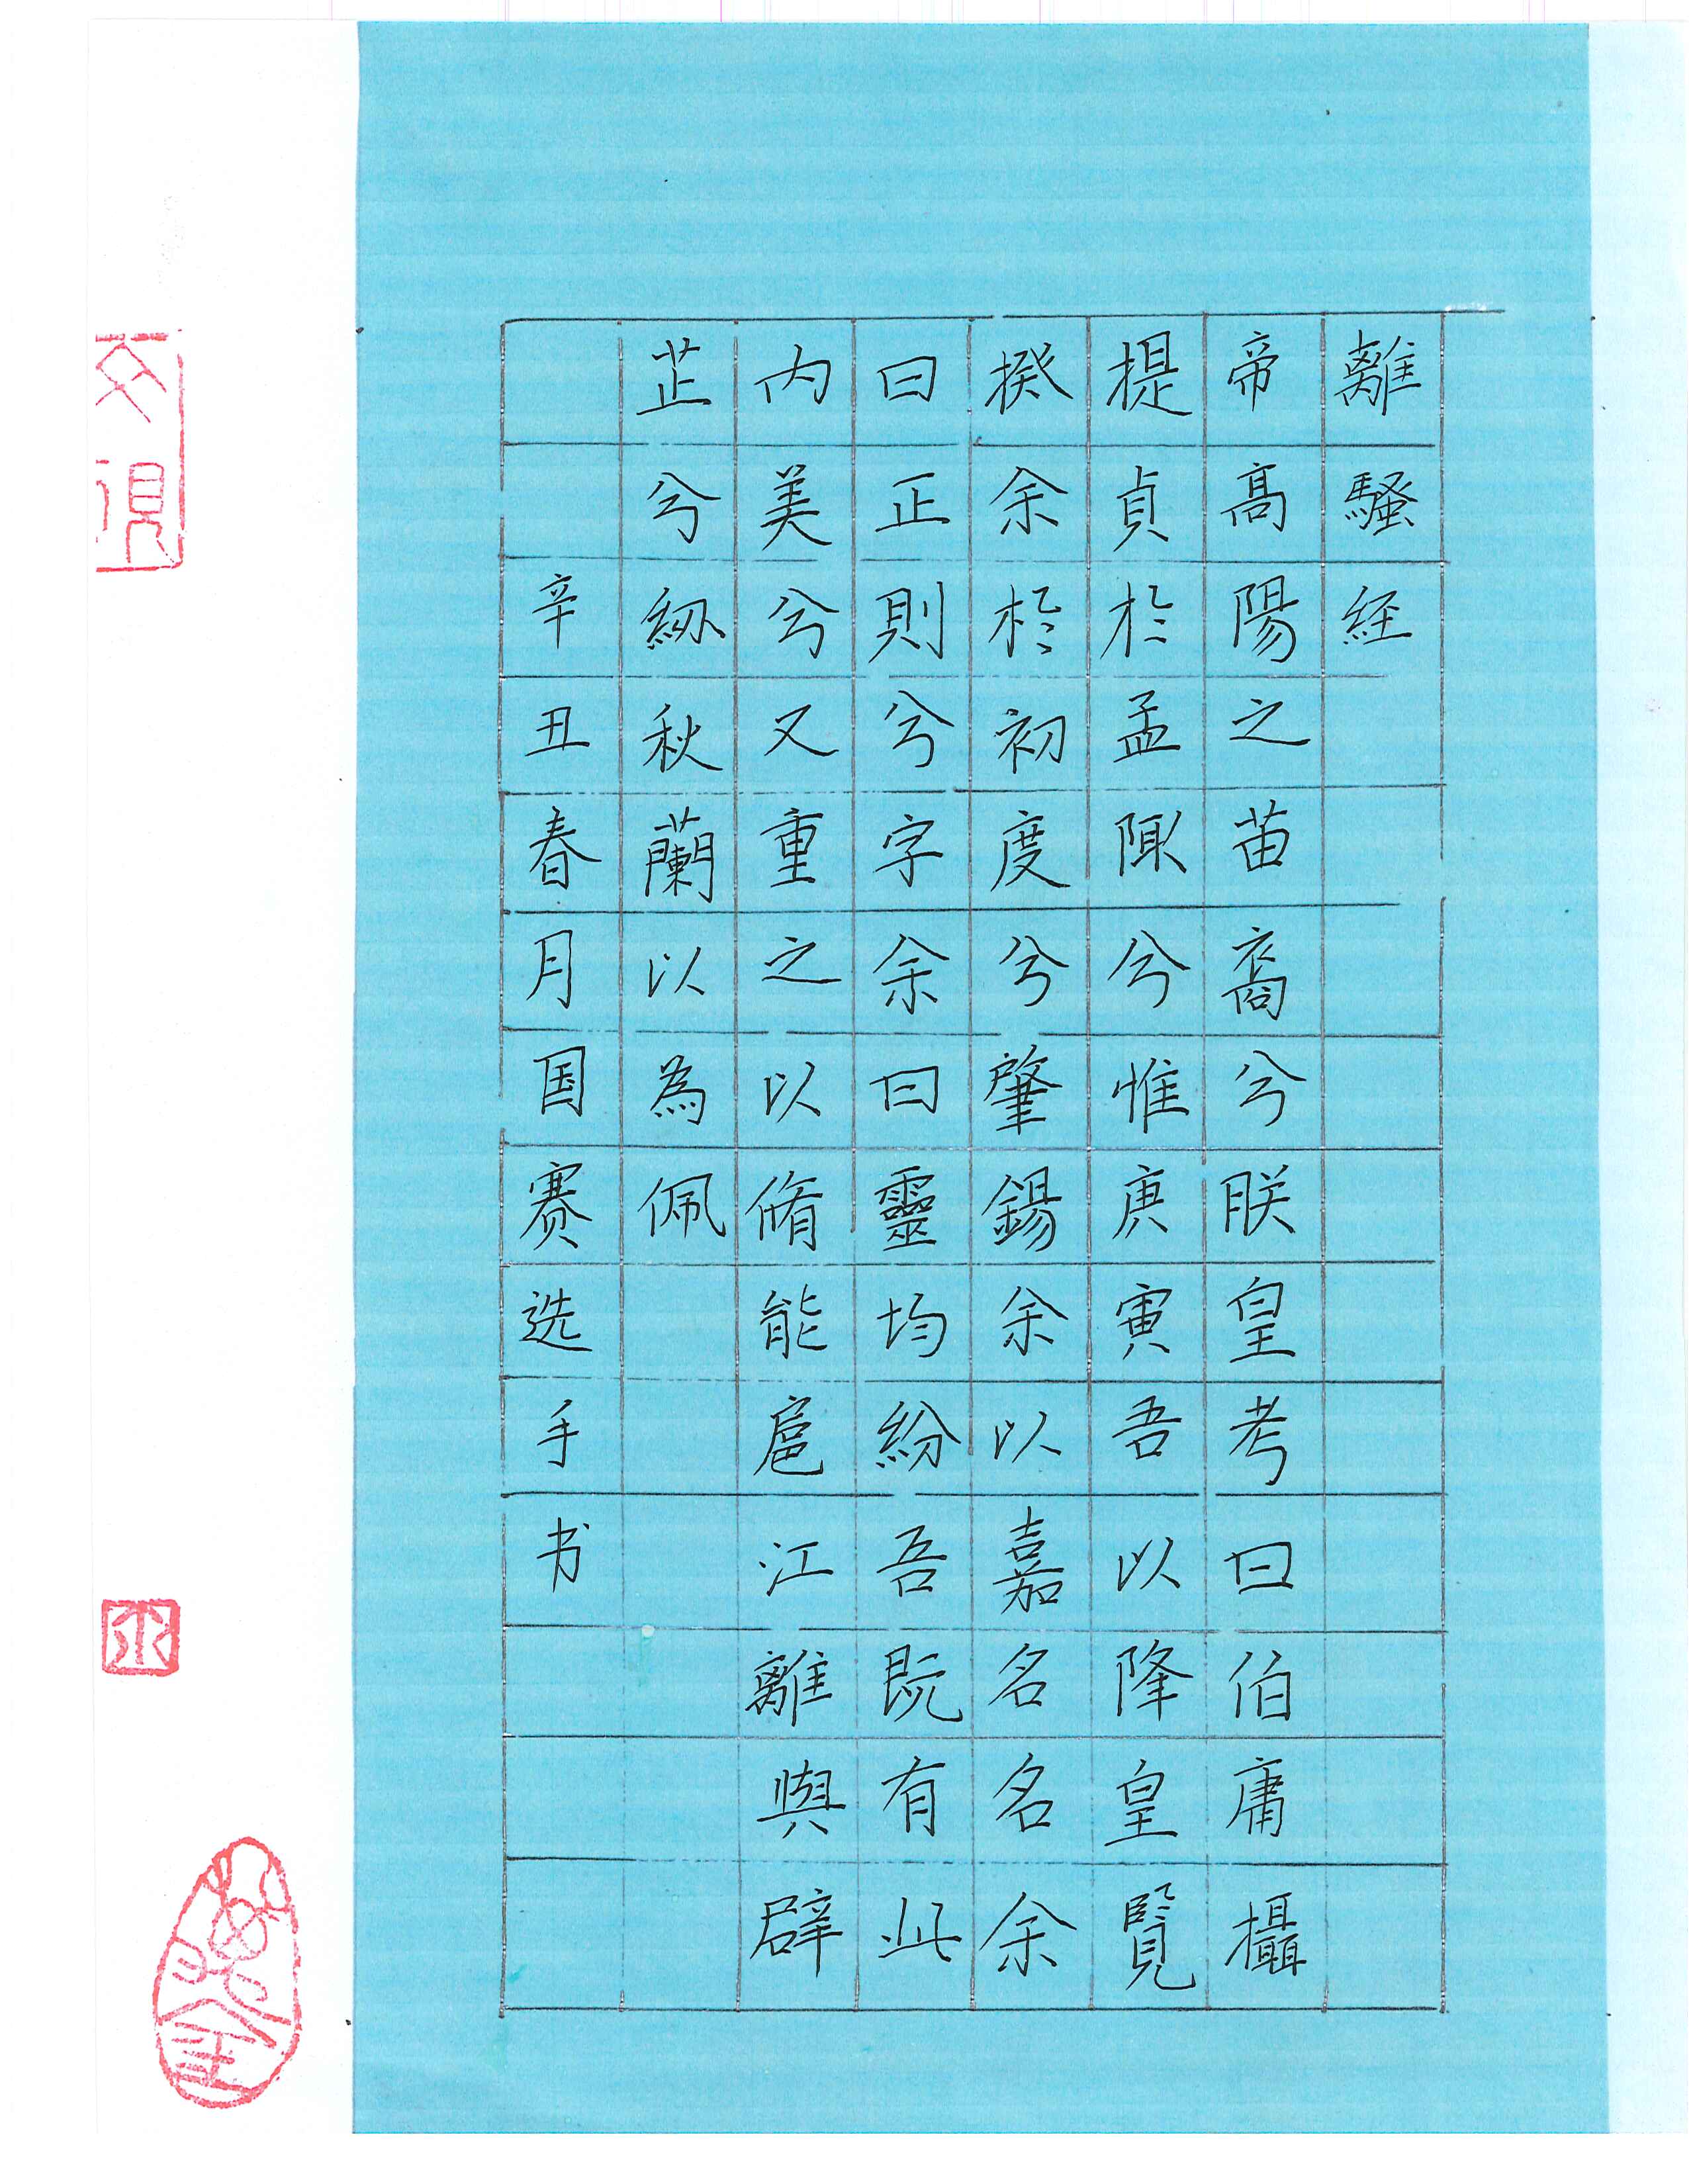 離騷經
帝高陽之苗裔兮朕皇考曰伯庸攝
提貞於孟陬兮惟庚寅吾以降皇覽
揆余於初度兮肇錫余以嘉名名余
曰正則兮字余曰靈均紛吾既有此
內美兮又重之以脩能扈江離與辟
芷兮紉秋蘭以為佩
辛丑春月国赛选手书